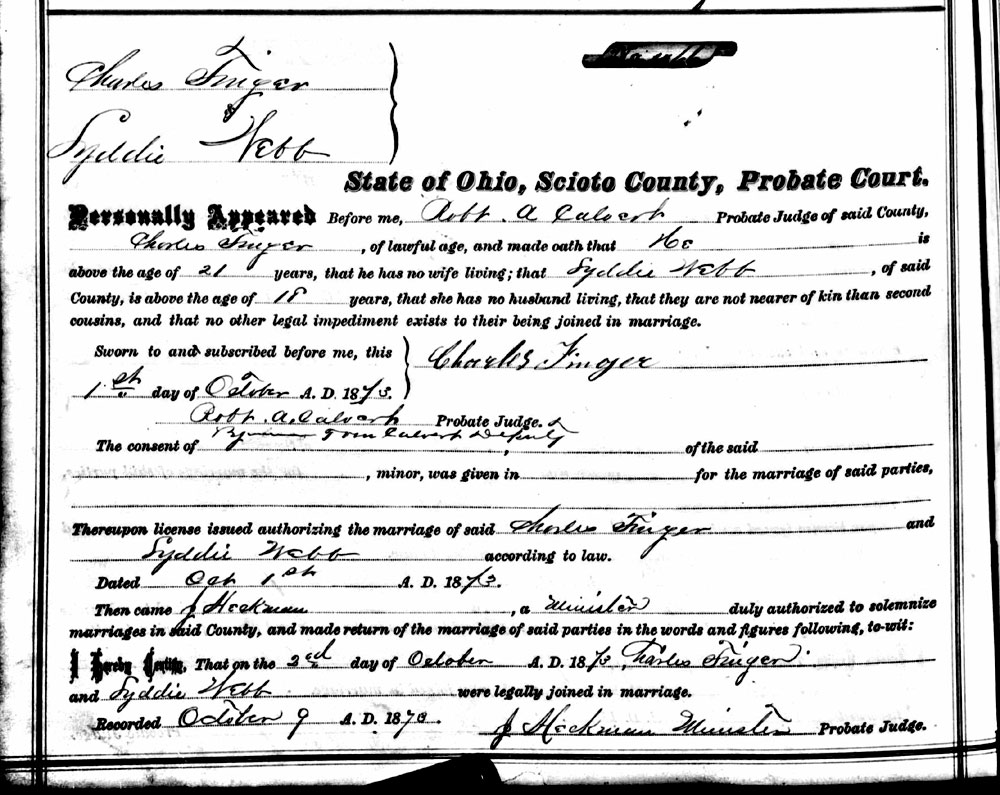 Charles Finger
&
Lyddie Webb
State of Ohio, Scioto County, Probate Court.
Personally Appeared Before me, Robt. A Calvert Probate Judge of said County,
Charles Finger, of lawful age, and made oath that He is
above the age of 21 years, that he has no wife living; that Lyddie Webb, of said
County, is above the age of 18 years, that she has no husband living, that they are not nearer of kin than second
cousins, and that no other legal impediment exists to their being joined in marriage.
Sworn to and subscribed before me, this
Charles Finger
1st day of October A. D. 1873.
Robt. A. Calvert Probate Judge.
By Tom Calvert Deputy
The consent of , of the said
, minor, was given in for the marriage of said parties,
Thereupon license issued authorizing the marriage of said Charles Finger and
Lyddie Webb according to law.
Dated Oct 1st A. D. 1873.
Then came J Heckman, a Minister duly authorized to solemnize
marriages in said County, and made return of the marriage of said parties in the words and figures following, to-wit:
I Hereby Certify, That on the 2nd day of October A. D. 1873 Charles Finger
and Lyddie Webb were legally joined in marriage.
Recorded October 9 A. D. 1873.
J Heckman Minister Probate Judge.